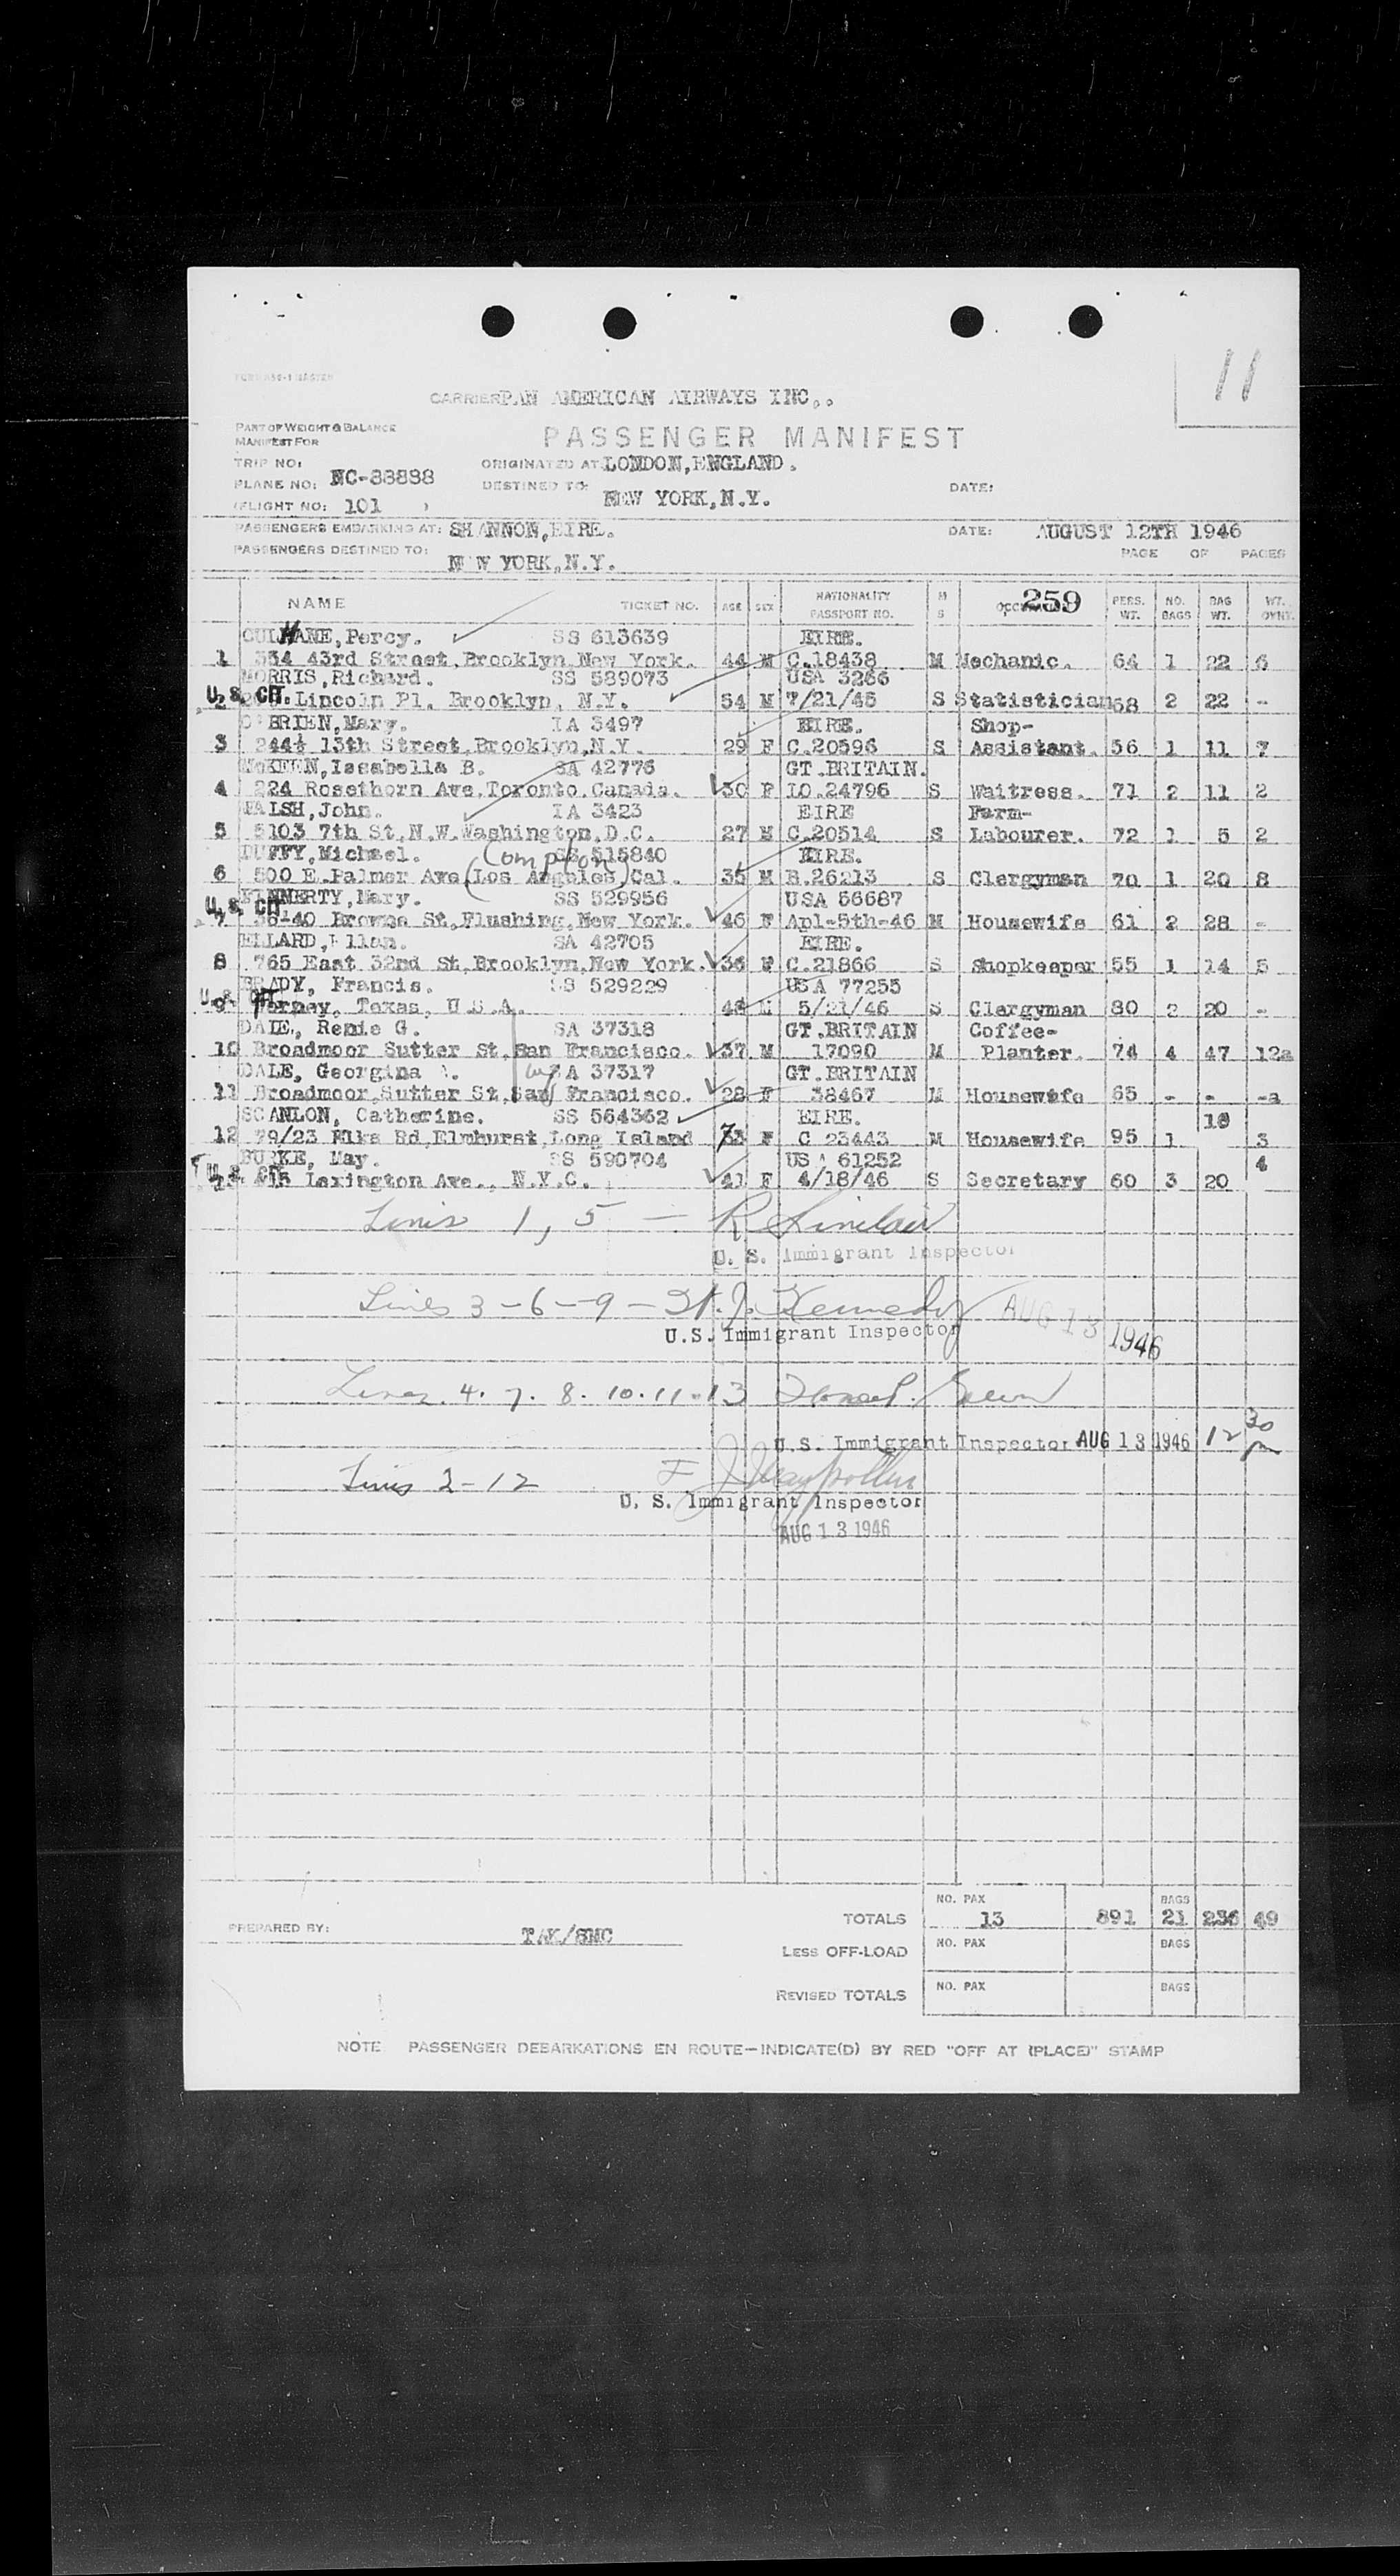 11
CARRIER PAN AMERICAN AIRWAYS INC,.
PART OF WEIGHT & BALANCE
MANIFEST FOR
PASSENGER MANIFEST
TRIP NO:
ORIGINATED AT: LONDON,ENGLAND.
PLANE NO: NC-88888
DESTINED TO: NEW YORK,N.Y.
DATE:
(FLIGHT NO: 101 )
PASSENGERS EMBARKING AT: SHANNON,EIRE.
DATE: AUGUST 12TH 1946
PASSENGERS DESTINED TO: NEW YORK,N.Y.
PAGE OF PAGES
NAME TICKET NO. AGE SEX NATIONALITY PASSPORT NO. M S 259 PERS. WT. NO. BAGS BAG WT. WT.
CULHANE,Percy. SS 613639 EIRE.
1 334 43rd Street,Brooklyn,New York. 44 M C.18438 M Mechanic. 64 1 22 6
MORRIS,Richard. SS 589073 USA 3266
U.S. CIT. 2 Lincoln Pl. Brooklyn, N.Y. 54 M 7/21/45 S Statistician 68 2 22 -
O'BRIEN,Mary. IA 3497 EIRE. Shop-
3 244½ 13th Street,Brooklyn,N.Y. 29 F C.20596 S Assistant. 56 1 11 7
McKEEN,Issabella B. SA 42776 GT.BRITAIN.
4 224 Rosethorn Ave,Toronto,Canada. 30 F LO.24796 S Waitress. 71 2 11 2
WALSH,John. IA 3423 EIRE Farm-
5 5103 7th St,N.W.Washington,D.C. 27 M C.20514 S Labourer. 72 1 5 2
DUFFY,Michael. (Compton SS 515840 EIRE.
6 500 E.Palmer Ave(Los Angeles)Cal. 35 M R.26213 S Clergyman 70 1 20 8
FINNERTY,Mary. SS 529956 USA 56687
U.S. CIT 7 36-40 Browne St,Flushing,New York. 46 F Apl-5th-46 M Housewife 61 2 28 -
ELLARD,Ellen. SA 42705 EIRE.
8 765 East 32nd St,Brooklyn,New York. 36 F C.21866 S Shopkeeper 55 1 14 5
BRADY, Francis. SS 529229 USA 77255
U.S. CIT 9 Texas, U.S.A. 48 M 5/21/46 S Clergyman 80 2 20 -
DALE, Remie G. SA 37318 GT.BRITAIN Coffee-
10 Broadmoor Sutter St,San Francisco. 37 M 17090 M Planter. 74 4 47 12a
DALE, Georgina SA 37317 GT.BRITAIN
11 Broadmoor,Sutter St,San Francisco. 28 F 38467 M Housewife 65 - - -a
SCANLON, Catherine. SS 564362 EIRE.
12 79/23 Elks Rd,Elmhurst,Long Island F C 23443 M Housewife 95 1 16 3
BURKE, May. SS 590704 USA 61252
U.S. CIT 13 Lexington Ave., N.Y.C. 41 F 4/18/46 S Secretary 60 3 20 4
Lines 1, 5 — R Sinclair
U. S. Immigrant Inspector
Lines 3-6-9- Kennedy AUG 13 1946
U.S. Immigrant Inspector
Lines. 4. 7. 8. 10. 11. 13
U.S. Immigrant Inspector AUG 13 1946 12 30 pm
Lines 2-12
U. S. Immigrant Inspector
AUG 13 1946
PREPARED BY: TAK/SMC
TOTALS NO. PAX 13 891 BAGS 21 236 49
LESS OFF-LOAD NO. PAX BAGS
REVISED TOTALS NO. PAX BAGS
NOTE PASSENGER DEBARKATIONS EN ROUTE—INDICATE(D) BY RED "OFF AT (PLACE)" STAMP